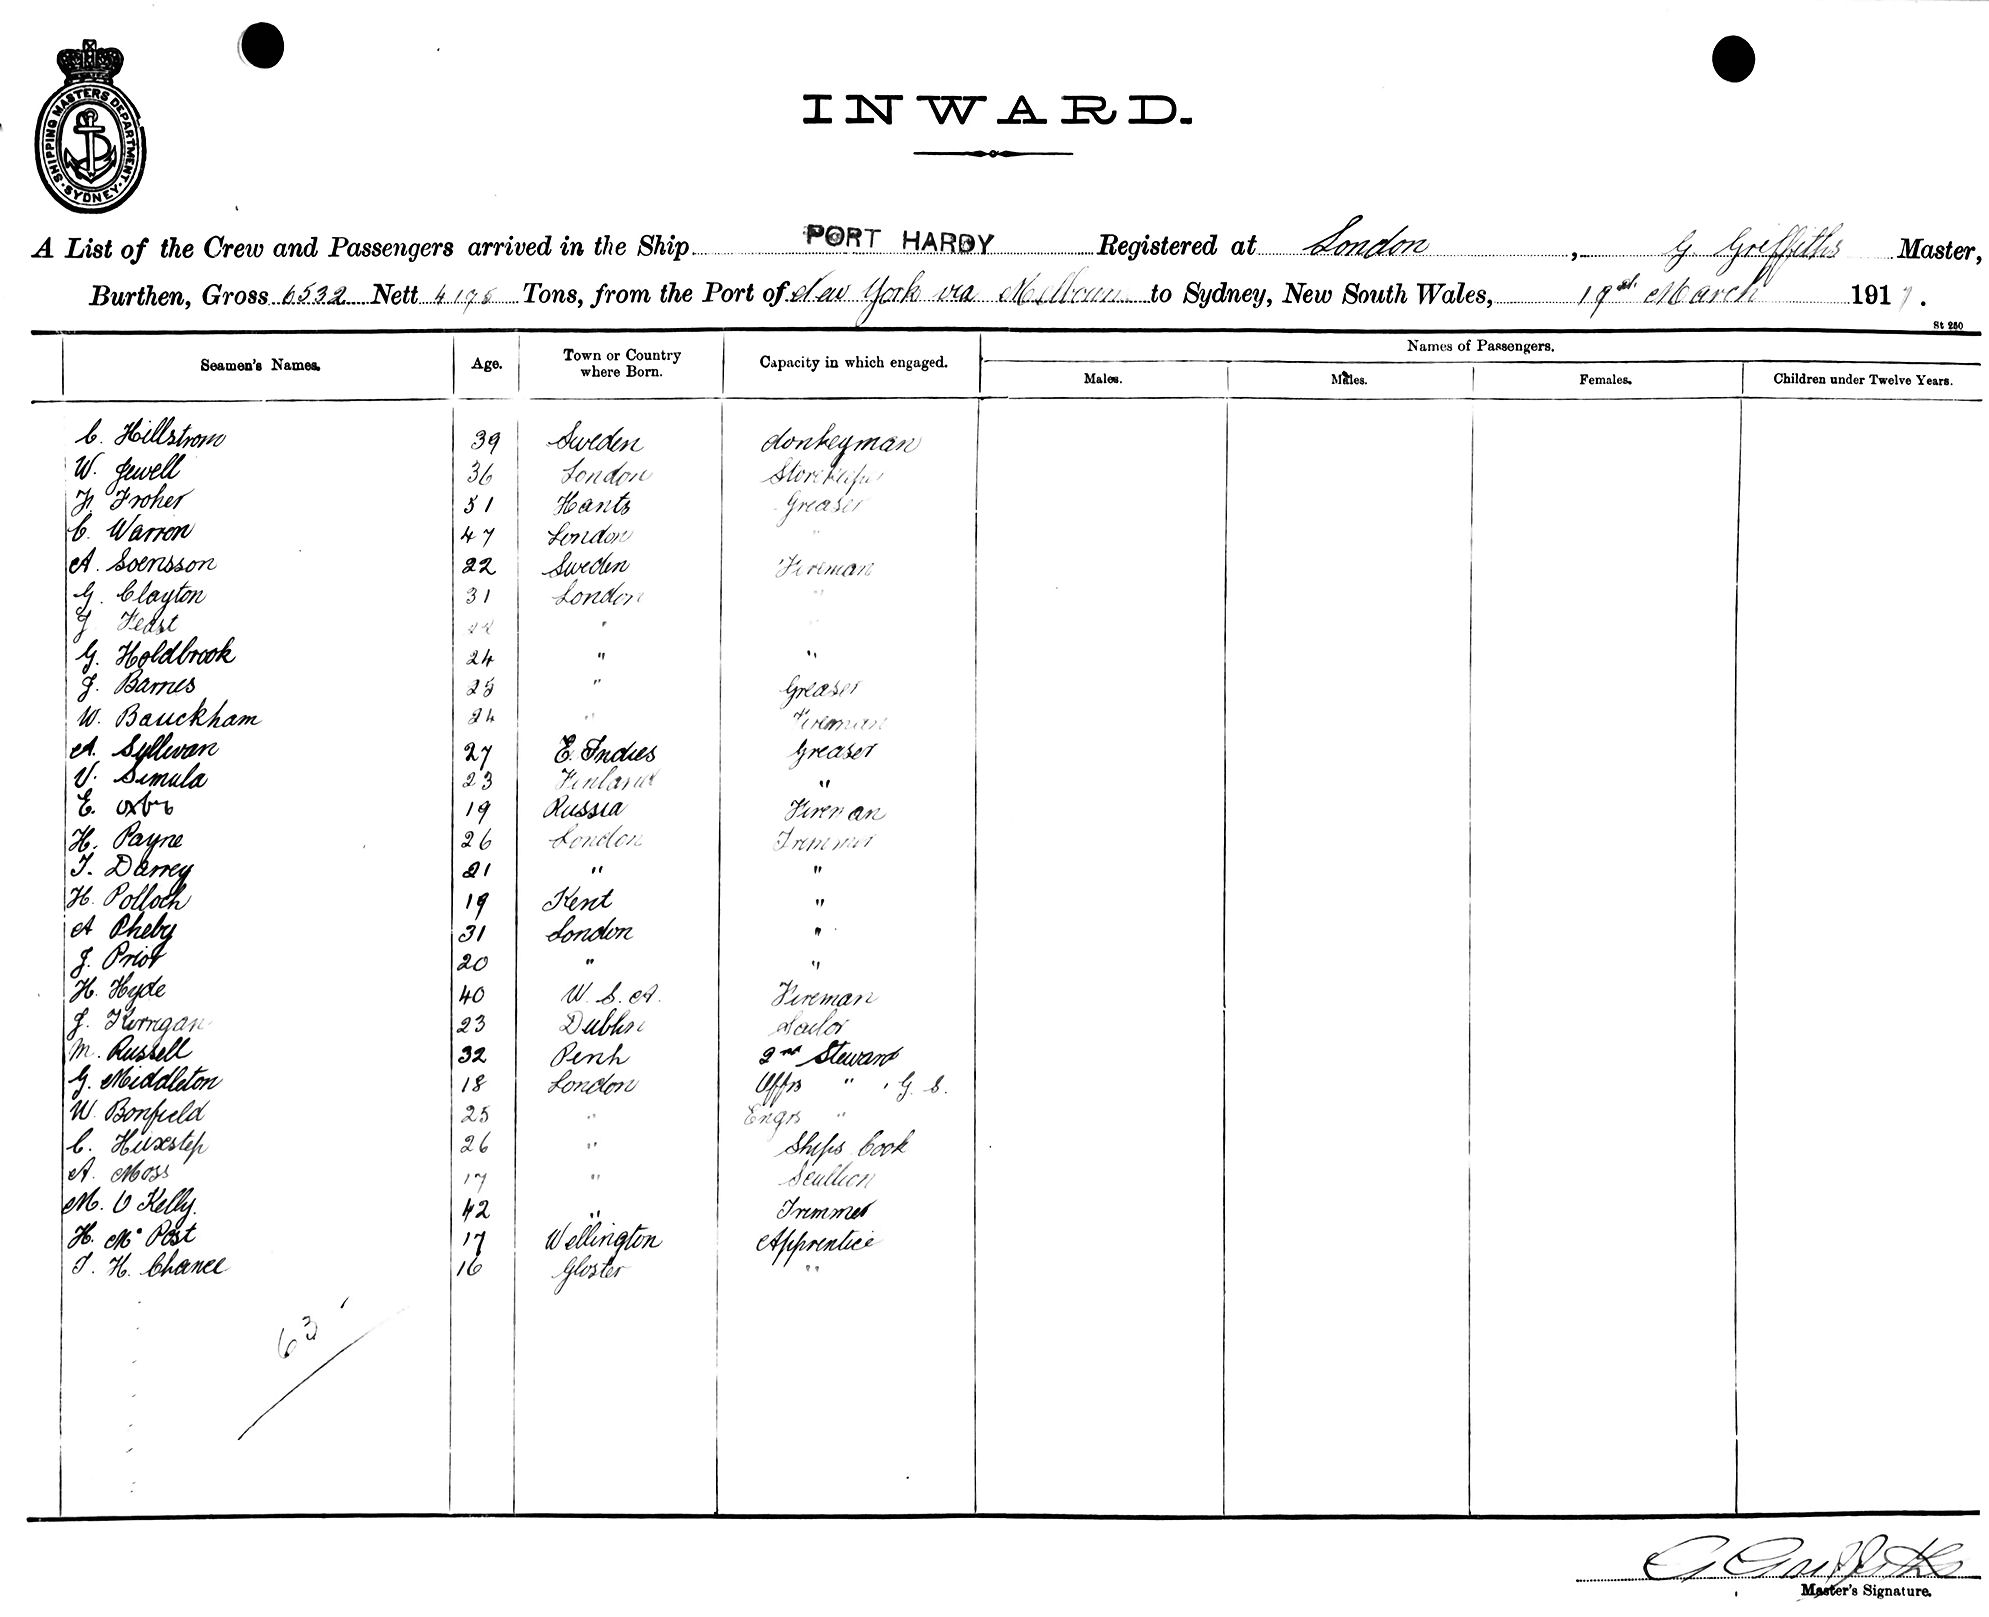 SHIPPING MASTERS DEPARTMENT
SYDNEY
INWARD.
A List of the Crew and Passengers arrived in the Ship PORT HARDY Registered at London, G Griffiths Master,
Burthen, Gross 6532 Nett 4195 Tons, from the Port of New York via Melbourne to Sydney, New South Wales, 19th March 1917.
St 250
Seamen's Names. Age. Town or Country where Born. Capacity in which engaged. Names of Passengers.
Males. Males. Females. Children under Twelve Years.
C. Hillstrom 39 Sweden donkeyman
W. Jewell 36 London Storekeeper
F. Froher 51 Hants Greaser
C. Warren 47 London "
A. Soensson 22 Sweden Fireman
G. Clayton 31 London "
J Feast " "
G. Holdbrook 24 " "
J. Barnes 25 " Greaser
W. Bauckham 24 " Fireman
A. Sullivan 27 E. Indies Greaser
V. Simula 23 Finland "
E. 19 Russia Fireman
H. Payne 26 London Trimmer
T. Darrey 21 " "
H. Polloch 19 Kent "
A Pheby 31 London "
J. Prior 20 " "
H. Hyde 40 U. S. A. Fireman
J. Kerrigan 23 Dublin Sailor
M. Russell 32 Penh 2nd Steward
G. Middleton 18 London Offrs " , G. S.
W. Bonfield 25 " Engrs "
C. Huxstep 26 " Ships Cook
A. Moss 17 " Scullion
M. O Kelly. 42 " Trimmer
H. Mc Post 17 Wellington Apprentice
T. H. Chance 16 Gloster "
63
G Griffiths
Master's Signature.